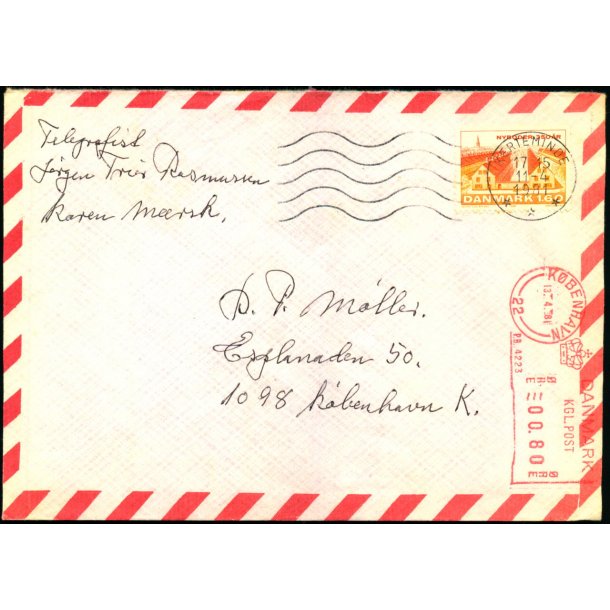 Telegrafist
Jørgen Trier Rasmussen
Karen Mærsk.
NYBODER 350 ÅR
DANMARK 1.60
KERTEMINDE
17-15
11-4
1981
A. P. Møller.
Esplanaden 50.
1098 København K.
KØBENHAVN
13.4.81
22
PB 4223
DANMARK
KGL.POST
ØRE
00.80
ØRE